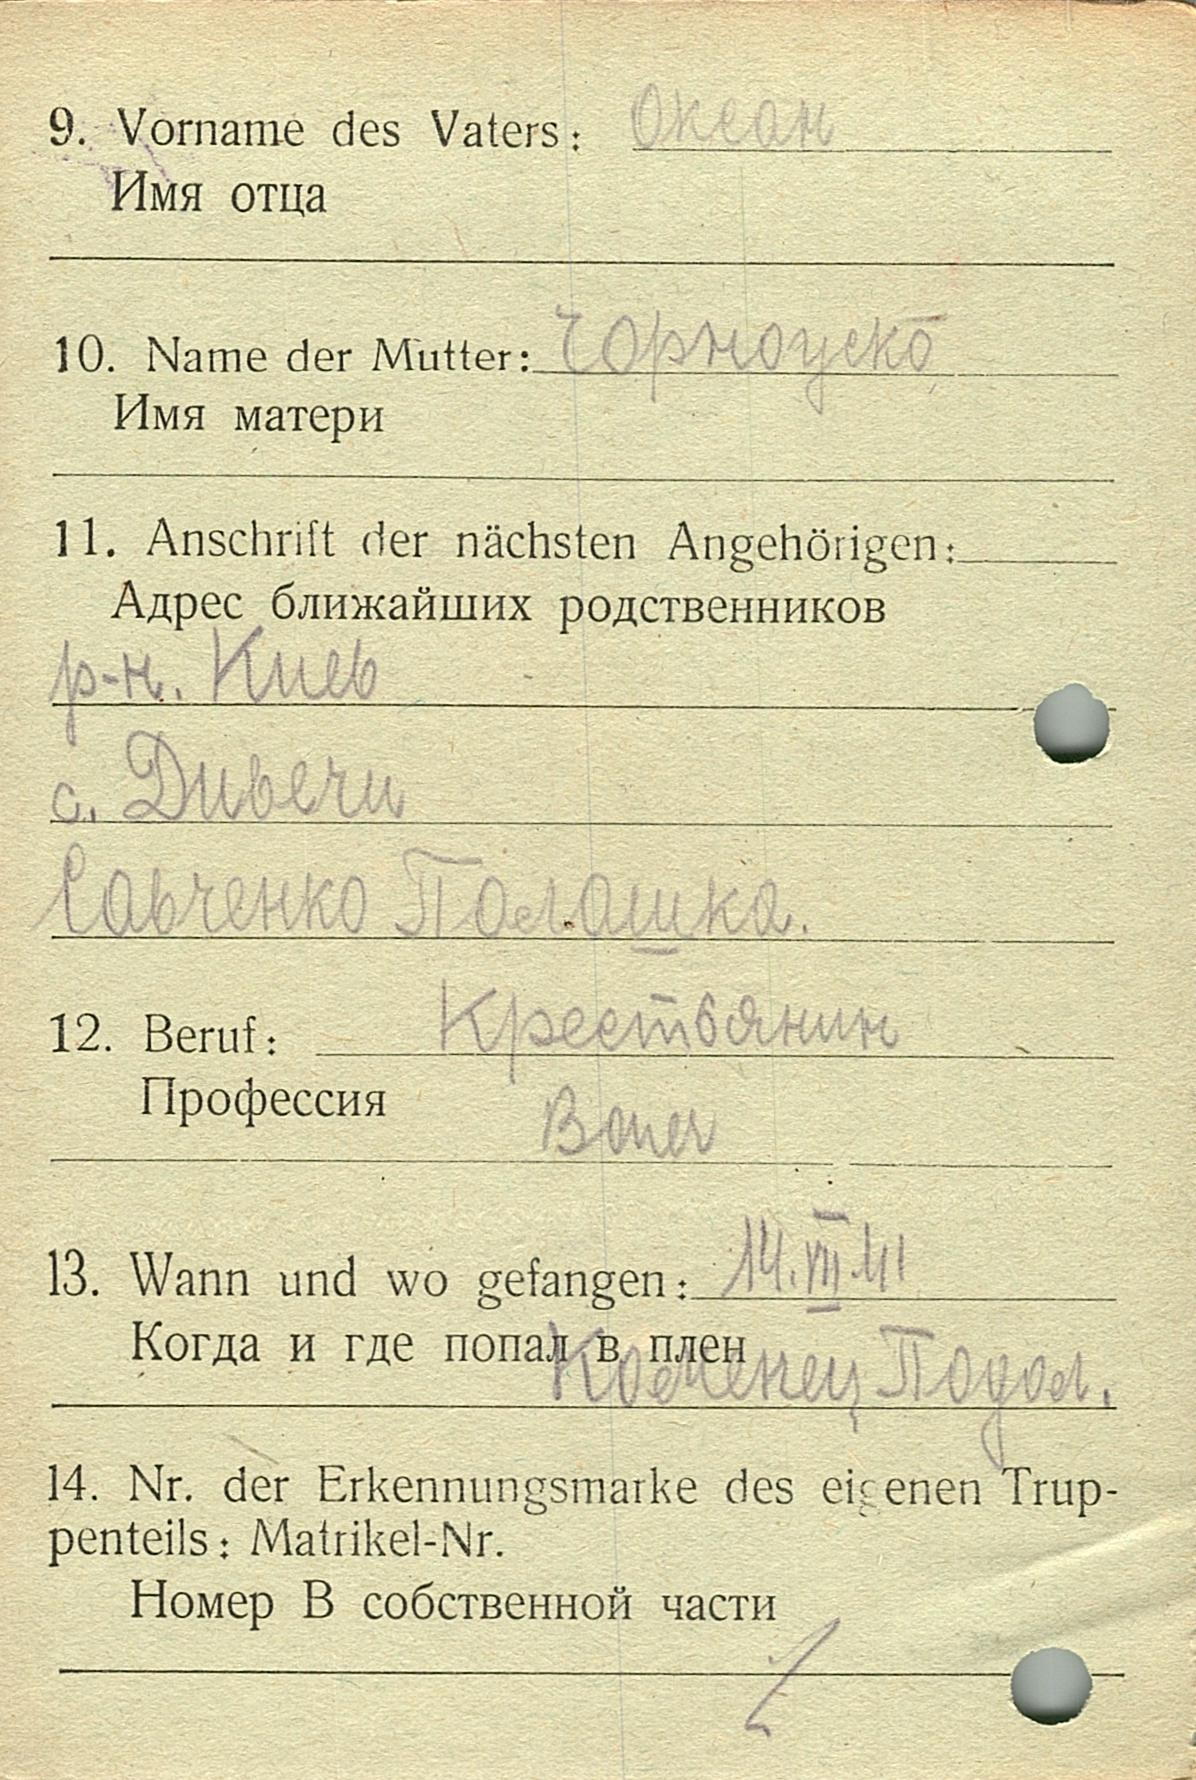 9. Vorname des Vaters: Океан
Имя отца
10. Name der Mutter: Чорноуско
Имя матери
11. Anschrift der nächsten Angehörigen:
Адрес ближайших родственников
р-н. Киев
с. Дивечи
Савченко Палашка.
12. Beruf: Крестьянин
Профессия
Bauer
13. Wann und wo gefangen: 14.VII.41
Когда и где попал в плен
Каменец Подол.
14. Nr. der Erkennungsmarke des eigenen Trup-
penteils: Matrikel-Nr.
Номер В собственной части